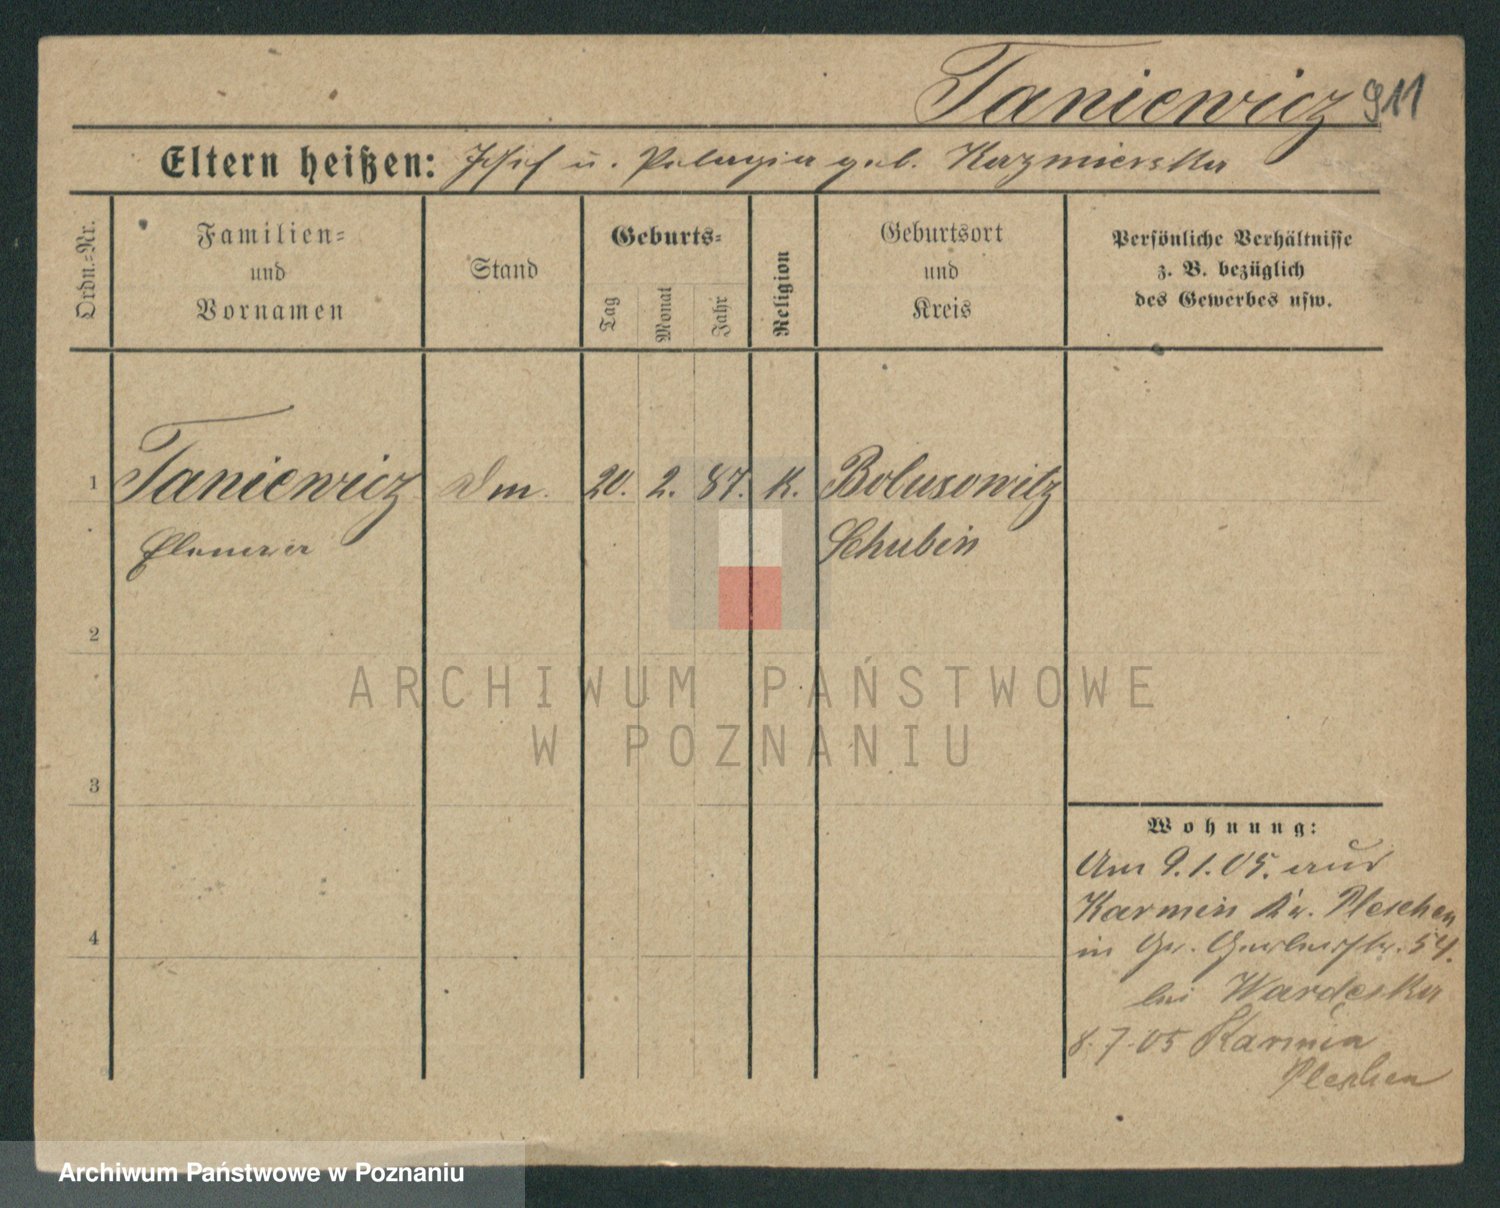 Taniewicz 911
Eltern heißen: Josef u. Pelagia geb. Kazmierska
Ordn.-Nr.
Familien-
und
Vornamen
Stand
Geburts-
Tag
Monat
Jahr
Religion
Geburtsort
und
Kreis
Persönliche Verhältnisse
z. B. bezüglich
des Gewerbes usw.
1 Taniewicz 20. 2. 87. K. Bolusowitz
Schubin
2
3
4
ARCHIWUM PAŃSTWOWE
W POZNANIU
Wohnung:
Am 9.1.05. aus
Karmin Kr. Pleschen
in Gr. Gerberstr. 54.
bei Wardęska
8.7.05 Karmin
Pleschen
Archiwum Państwowe w Poznaniu